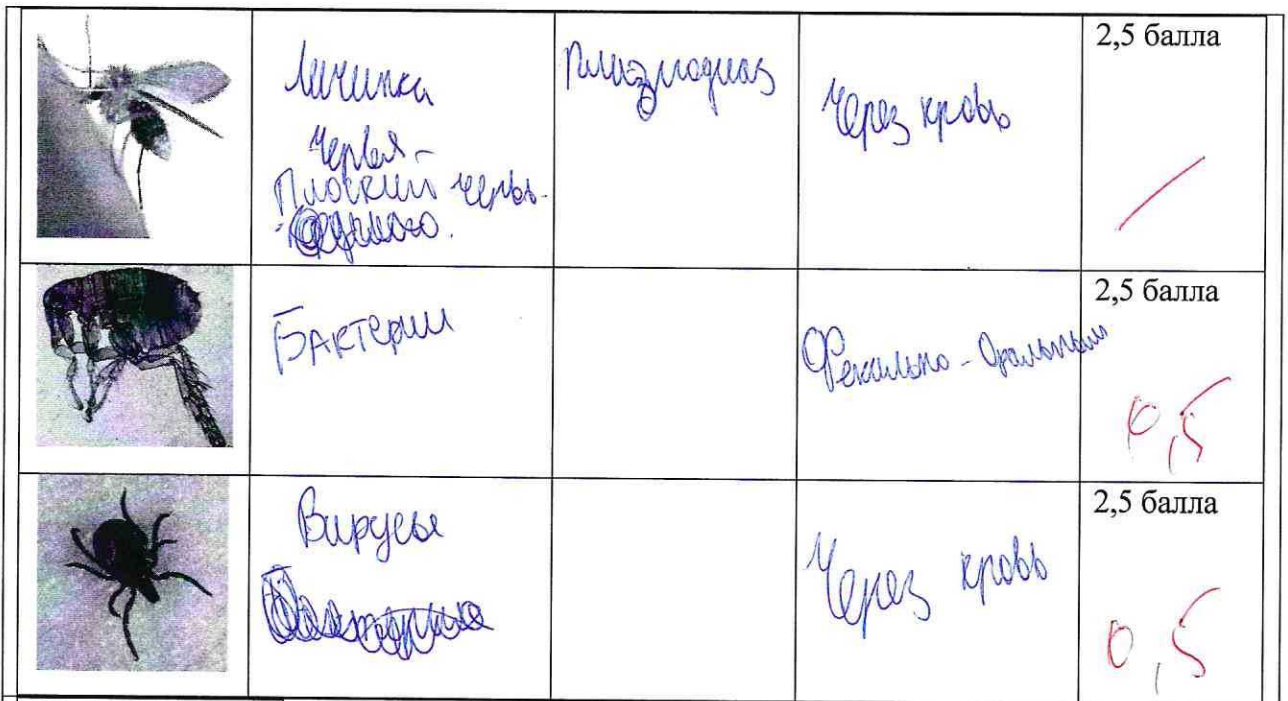 Личинка
червя -
Плоский червь-
плазмодиаз
Через кровь
2,5 балла
Бактерии
Фекально - Оральным
2,5 балла
0,5
Вирусы
Через кровь
2,5 балла
0,5